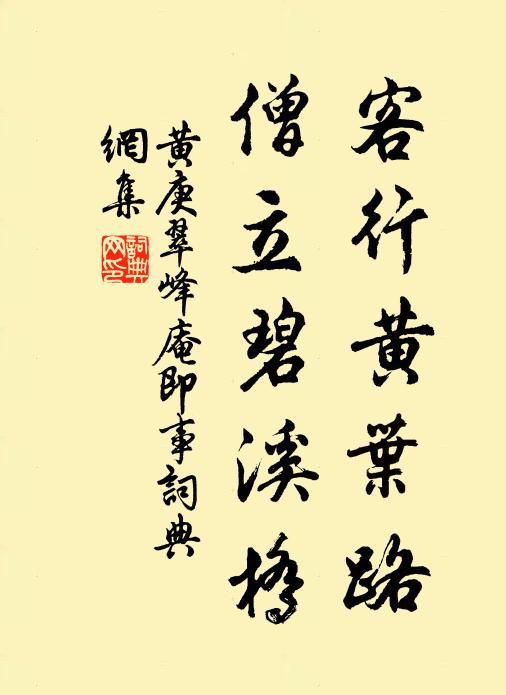 客行黃葉路
僧立碧溪橋
黃庚翠峰庵即事詞典
網集
詞典网印